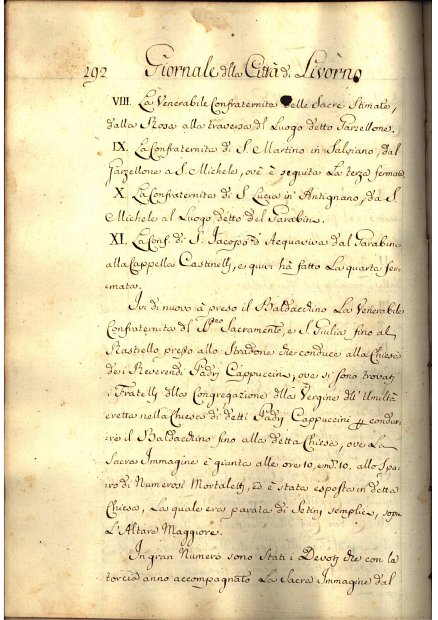 292 Giornale della Città di Livorno
VIII. La Venerabile Confraternita delle Sacre Stimate,
dalla Rosa alla traversa del Luogo detto Garzellone.
IX. La Confraternita di S. Martino in Salviano, dal
Garzellone a S. Michele, ov'è è seguita La terza fermata
X. La Confraternita di S. Lucia in Antignano, da S.
Michele al Luogo detto del Parabino.
XI. La Conf. di S. Jacopo d'Acquaviva dal Parabino
alla Cappella Castinelli, e quivi hà fatto La quarta fer-
mata.
Ivi di nuovo à preso il Baldacchino La Venerabile
Confraternita del Sacramento, e S. Giulia fino al
Rastrello presso allo Stradone che conduce alla Chiesa
dei Reverendi Padri Cappuccini, ove si sono trovati
i Fratelli della Congregazione della Vergine dell' Umiltà
eretta nella Chiesa di detti Padri Cappuccini condur-
re il Baldacchino fino alla detta Chiesa, ove La
Sacra Immagine è giunta alle ore 10, e m. 10, allo Spa-
ro di Numerosi Mortaletti, ed è stata esposta in detta
Chiesa, La quale era parata di Setini semplice, sopra
L'Altare Maggiore.
In gran Numero sono Stati i Devoti che con la
torcia anno accompagnato La Sacra Immagine dal